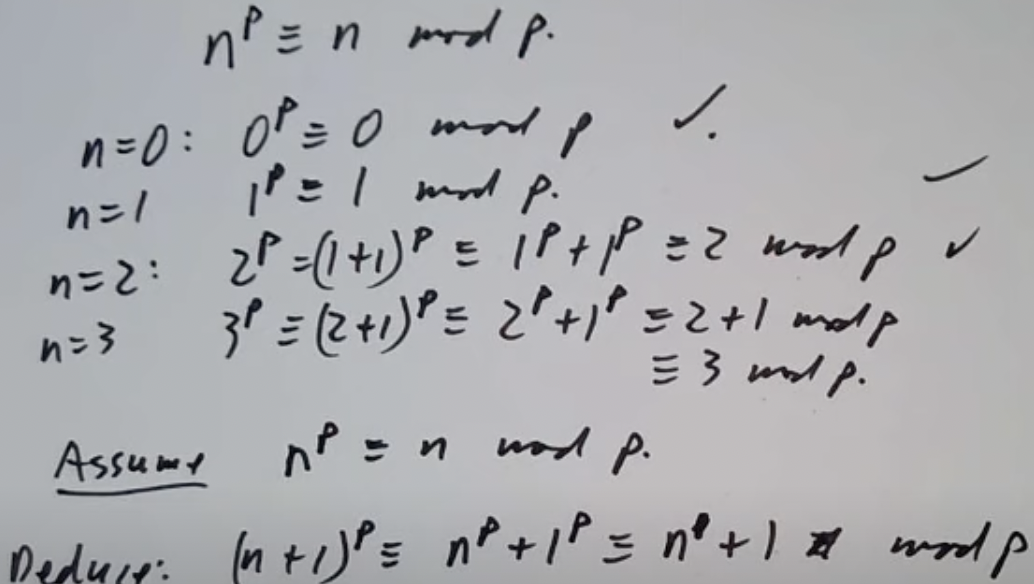 n^p ≡ n mod p.
n=0: 0^p ≡ 0 mod p ✓.
n=1 1^p ≡ 1 mod p. ✓
n=2: 2^p =(1+1)^p ≡ 1^p+1^p ≡ 2 mod p ✓
n=3 3^p ≡ (2+1)^p ≡ 2^p+1^p ≡ 2+1 mod p
≡ 3 mod p.
Assume n^p ≡ n mod p.
Deduce: (n+1)^p ≡ n^p+1^p ≡ n^p+1 mod p